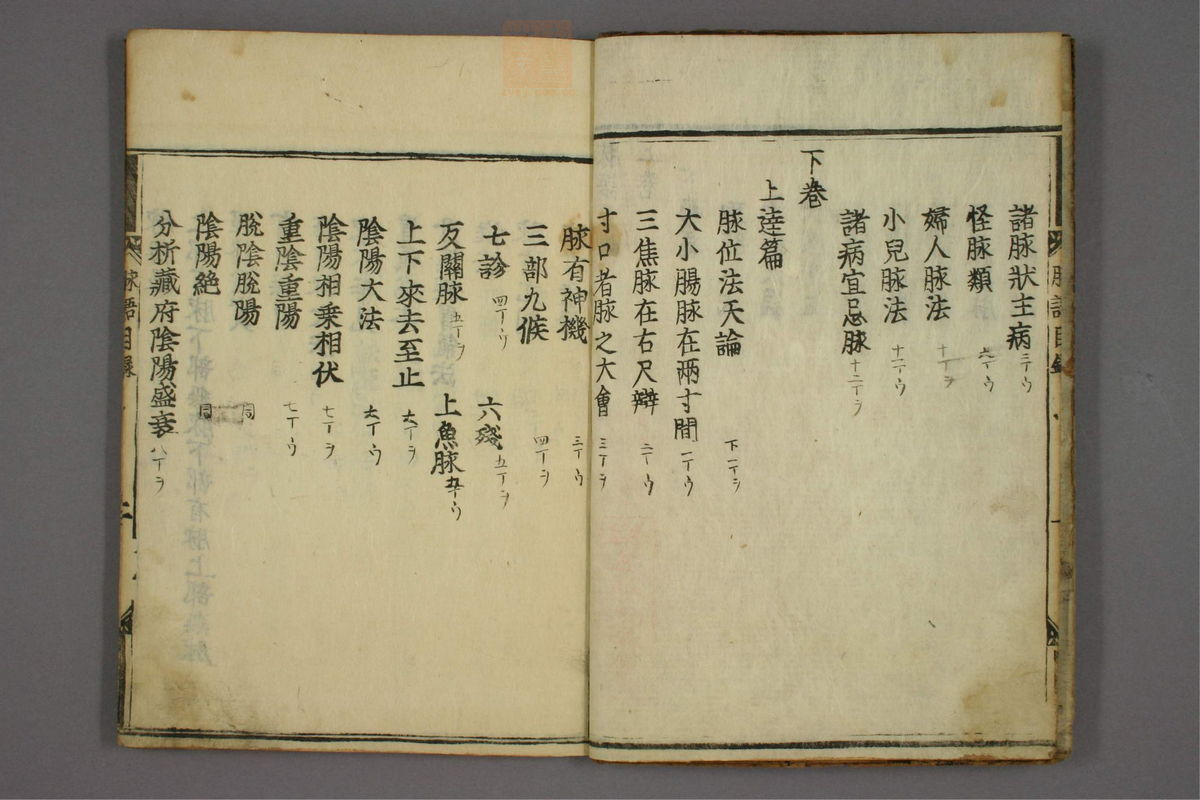 諸脉狀主病 三丁ウ
怪脉類 九丁ウ
婦人脉法 十丁ヲ
小兒脉法 十一丁ウ
諸病宜忌脉 十二丁ヲ
下巻
上達篇
脉位法天論 下一丁ヲ
大小腸脉在兩寸間 一丁ウ
三焦脉在右尺辯 二丁ウ
寸口者脉之大會 三丁ヲ
脉有神機 三丁ウ
三部九候 四丁ヲ
七診 四丁ウ 六殘 五丁ヲ
反關脉 五丁ヲ 上魚脉 五丁ウ
上下來去至止 六丁ヲ
陰陽大法 六丁ウ
陰陽相乗相伏 七丁ヲ
重陰重陽 七丁ウ
脫陰脫陽 同
陰陽絕 同
分析藏府陰陽盛衰 八丁ヲ
脉語目錄